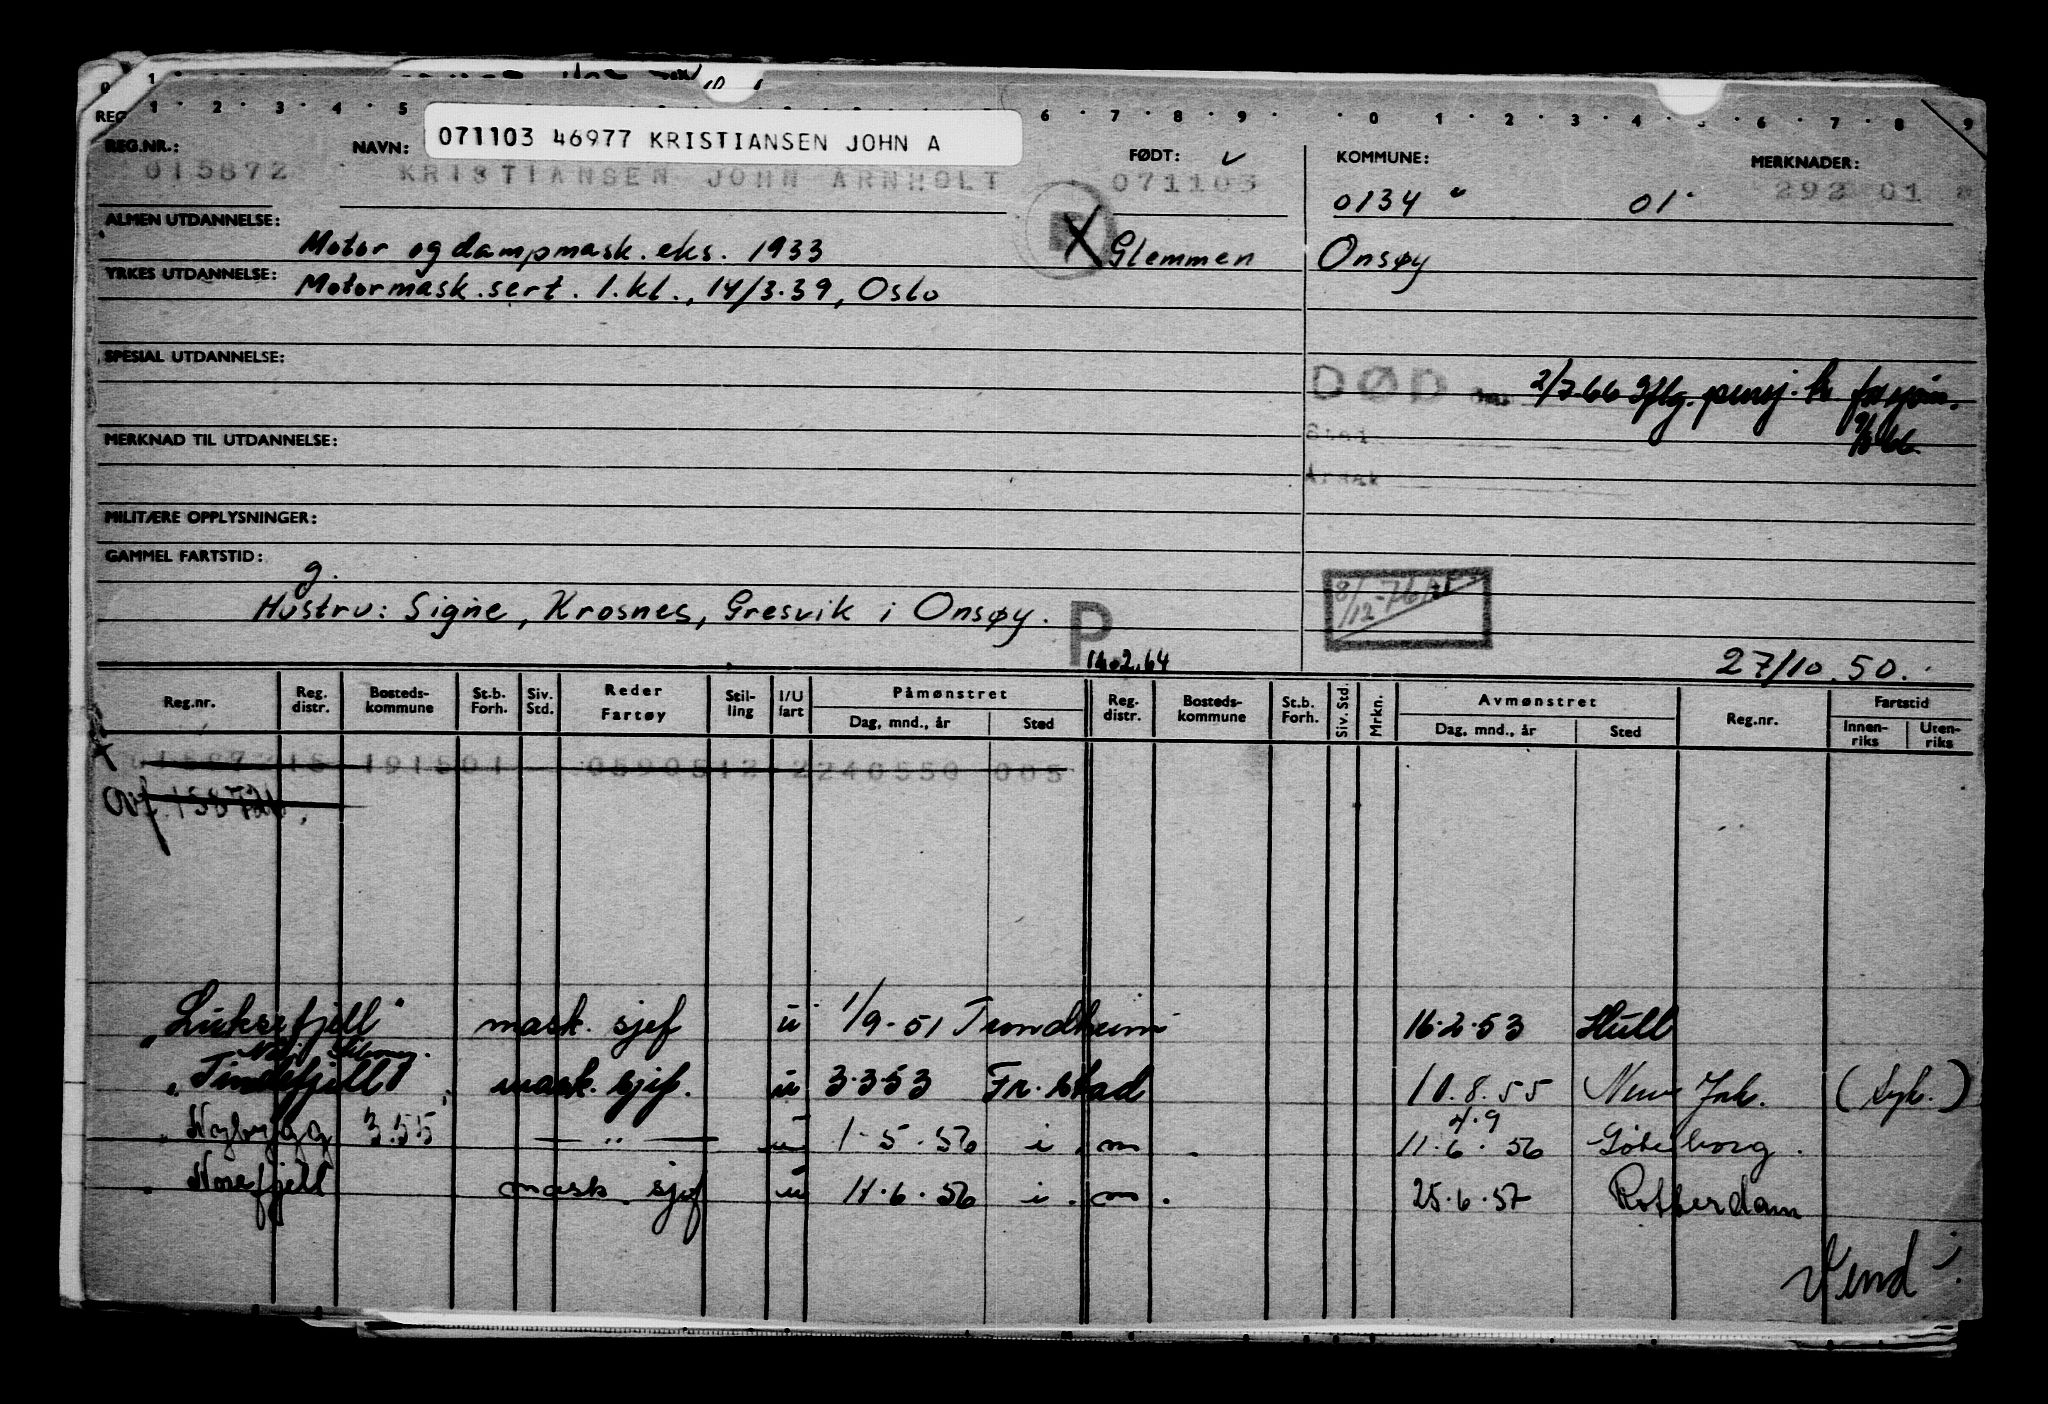 1 2 3 4 5 6 7 8 9 0 1 2 3 4 5 6 7 8 9
071103 46977 KRISTIANSEN JOHN A
REG.NR.: NAVN: FØDT: KOMMUNE: MERKNADER:
015872 KRISTIANSEN JOHN ARNHOLT 071103 0134 01 292 01
ALMEN UTDANNELSE: Motor og dampmask. eks. 1933 Glemmen Onsøy
YRKES UTDANNELSE: Motormask. sert. 1. kl., 14/3.39, Oslo
SPESIAL UTDANNELSE:
DØD 2/7.66 Iflg. pensj.
MERKNAD TIL UTDANNELSE: Sted
Årsak
MILITÆRE OPPLYSNINGER:
GAMMEL FARTSTID:
g.
Hustru: Signe, Krosnes, Gresvik i Onsøy. P
8/12-76
14.02.64 27/10.50.
Reg.nr. Reg. distr. Bosteds-kommune St.b. Forh. Siv. Std. Reder Fartøy Stil-ling I/U fart Påmønstret Dag, mnd., år Sted Reg. distr. Bosteds-kommune St.b. Forh. Siv. Std. Mrkn. Avmønstret Dag, mnd., år Sted Reg.nr. Fartstid Innen-riks Uten-riks
15 191501 0590512 2240550 005
Ovf.
"Luksefjell" mask. sjef u 1/9-51 Trondheim 16.2.53 Hull
"Tindefjell" mask. sjef. u 3.3.53 Fr.stad 10.8.55 New York. (Syk.)
4.9
Nybygg 355 — " — u 1.5.56 i. m. 11.6.56 Göteborg.
Norefjell mask. sjef u 11.6.56 i. m. 25.6.57 Rotterdam
Vend!